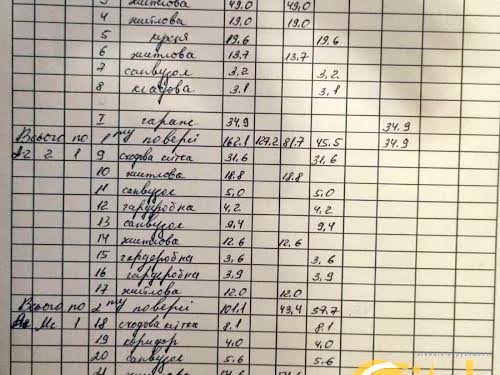 3 житлова 49,0 49,0
4 житлова 19,0 19,0
5 кухня 19,6 19,6
6 житлова 13,7 13,7
7 санвузол 3,2 3,2
8 кладова 3,1 3,1
I гараж 34,9 34.9
Всього по 1 му поверсі 162.1 127.2 81.7 45.5 34.9
2 1 9 сходова клітка 31.6 31.6
10 житлова 18.8 18.8
11 санвузол 5,0 5,0
12 гардеробна 4,2 4,2
13 санвузол 9,4 9,4
14 житлова 12.6 12.6
15 гардеробна 3,6 3,6
16 гардеробна 3,9 3,9
17 житлова 12.0 12.0
Всього по 2 му поверсі 101.1 43,4 57.7
Мс 1 18 сходова клітка 8.1 8.1
19 коридор 4.0 4.0
20 санвузол 5.6 5.6
21 житлова